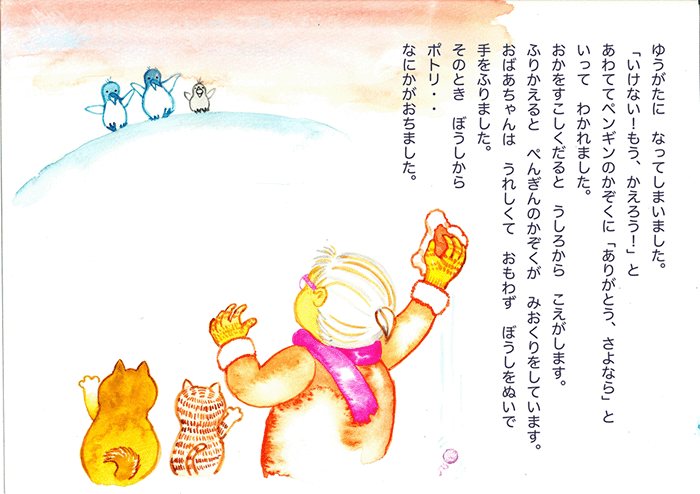 ゆうがたに　なってしまいました。
「いけない！もう、かえろう！」と
あわててペンギンのかぞくに「ありがとう、さよなら」と
いって　わかれました。
おかをすこしくだると　うしろから　こえがします。
ふりかえると　ぺんぎんのかぞくが　みおくりをしています。
おばあちゃんは　うれしくて　おもわず　ぼうしをぬいで
手をふりました。
そのとき　ぼうしから
ポトリ・・
なにかがおちました。